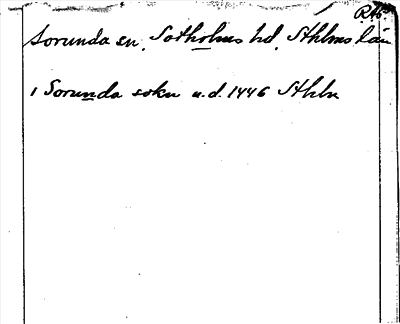 RAp
Sorunda sn, Sotholms hd, Sthlms län
i Sorunda sokn u.d. 1446 Sthlm